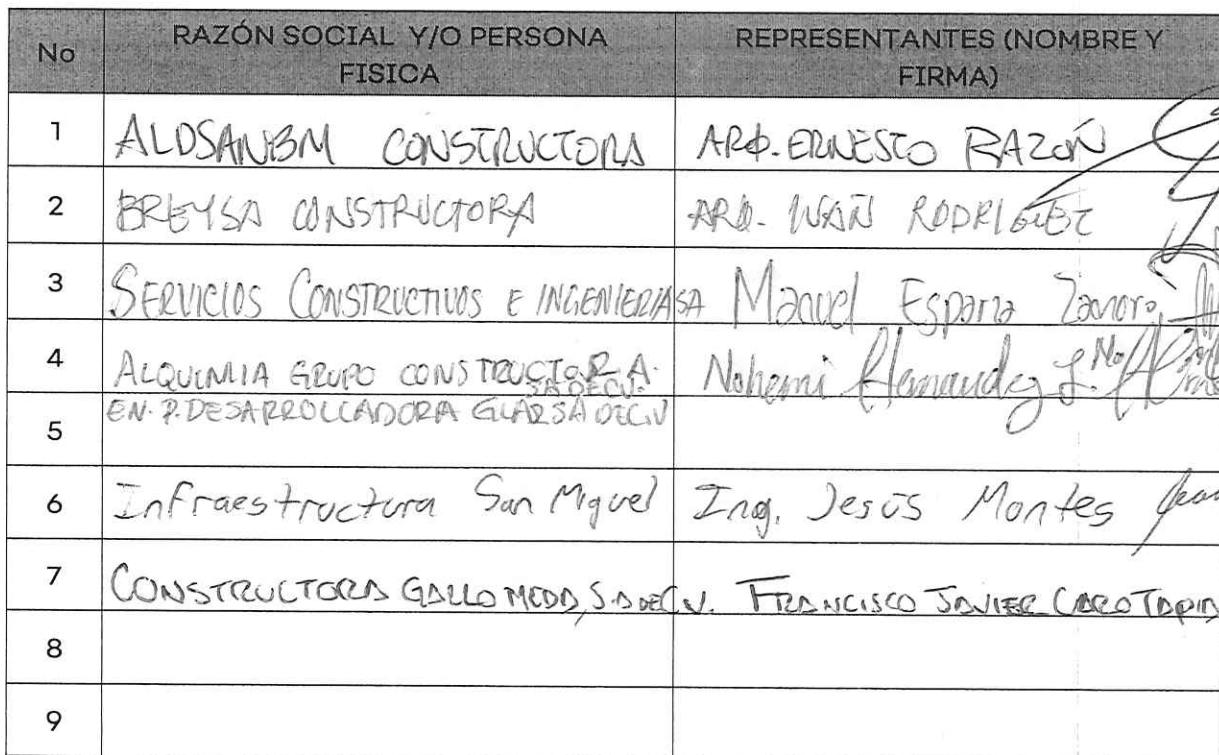 No RAZÓN SOCIAL Y/O PERSONA FISICA REPRESENTANTES (NOMBRE Y FIRMA)
1 ALDSANBM CONSTRUCTORA ARQ. ERNESTO RAZÓN
2 BREYSA CONSTRUCTORA ARQ. IVAN RODRIGUEZ
3 SERVICIOS CONSTRUCTIVOS E INGENIERIA SA Manuel España Zamora
4 ALQUIMIA GRUPO CONSTRUCTORA SA DE CV. Nohemi Hernandez L.
EN P. DESARROLLADORA GLAR SA DE CV
5
6 Infraestructura San Miguel Ing. Jesús Montes
7 CONSTRUCTORA GALLO MEDA, S.A DE C.V. FRANCISCO JAVIER CARO TAPIA
8
9